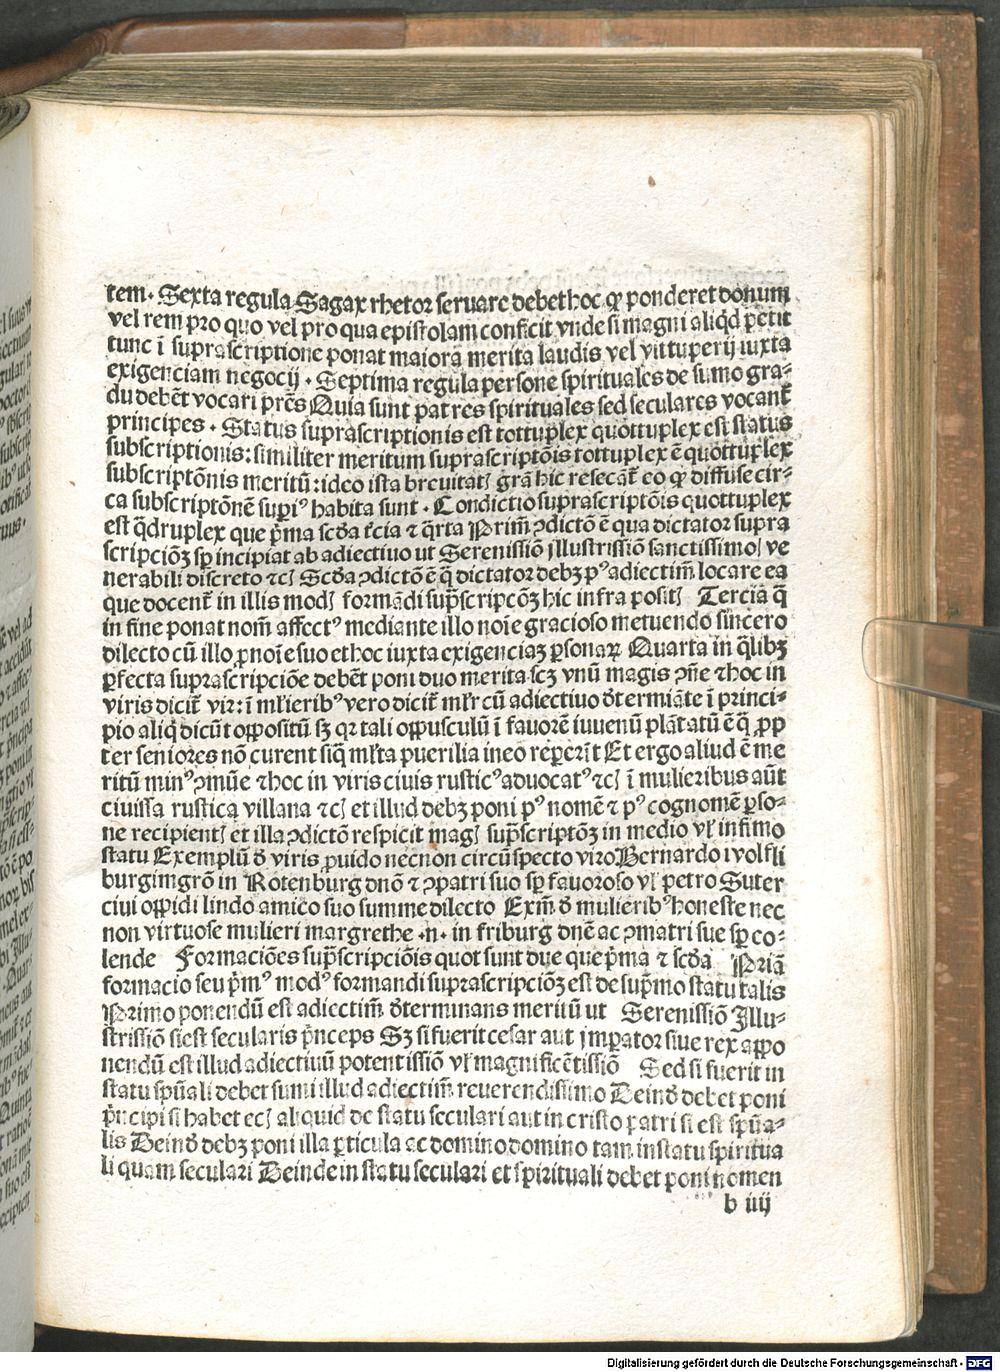 tem. Sexta regula Sagax rhetor seruare debet hoc qͥ ponderet donum
vel rem pro quo vel pro qua epistolam conficit vnde si magni aliqͥd petit
tunc ī suprascriptione ponat maiora merita laudis vel vituperij iuxta
exigenciam negocij . Septima regula persone spirituales de sūmo gra⸗
du debēt vocari prēs Quia sunt patres spirituales sed seculares vocant᷑
principes . Status suprascriptionis est tottuplex quottuplex est status
subscriptionis: similiter meritum suprascriptōis tottuplex ē quottuplex
subscriptōnis meritū: ideo ista breuitatꝭ grā hic resecant᷑ eo qꝙ diffuse cir⸗
ca subscriptōnē superiꝰ habita sunt . Condictio suprascriptōis quottuplex
est q̄druplex que p̄ma scd̄a t̄cia ⁊ q̄rta Prim̄ ꝯdictō ē qua dictator supra
scripciōꝫ sꝑ incipiat ab adiectiuo ut Serenissiō jllustrissiō sanctissimo/ ve
nerabili discreto ⁊cꝭ Scd̄a ꝯdictō ē q̄ dictator debꝫ pꝰ adiectim̄ locare ea
que docent᷑ in illis modꝭ formādi sup̄scripcōꝫ hic infra positꝭ Tercia q̄
in fine ponat nom̄ affectꝰ mediante illo noīe gracioso metuendo sincero
dilecto cū illo ꝓnoīe suo et hoc iuxta exigenciaꝫ ꝑsonaꝝ Quarta in q̄libꝫ
ꝑfecta suprascripciōe debēt poni duo merita scꝫ vnū magis ꝯm̄e ⁊ hoc in
viris dicit᷑ vir: ī ml̄ieribꝰ vero dicit᷑ ml̄r cū adiectiuo d̄termiāte ī princi⸗
pio aliq̄ dicūt oppositū sꝫ qꝛ tali oppusculū ī fauorē iuuenū plātatū ē q̄ ꝓp
ter seniores nō curent siq̄ ml̄ta puerilia in eo reperēr̄t Et ergo aliud ē me
ritū minꝰ ꝯmūe ⁊ hoc in viris ciuis rusticꝰ aduocatꝰ ⁊cꝭ ī mulieribus aūt
ciuissa rustica villana ⁊cꝭ et illud debꝫ poni pꝰ nomē ⁊ pꝰ cognomē ꝑso⸗
ne recipientꝭ et illa ꝯdictō respicit magꝭ sup̄scriptōꝫ in medio vl̄ infimo
statu Exemplū d̄ viris ꝓuido necnon circūspecto viro Bernardo wolfli
burgimgrō in Rotenburg dnō ⁊ ꝯpatri suo sꝑ fauoroso vl̄ petro Suter
ciui oppidi lindo amico suo summe dilecto Exm̄ d̄ mulieribꝰ honeste nec
non virtuose mulieri margrethe .n. in friburg dn̄e ac ꝯmatri sue sꝑ co⸗
lende Formaciōes sup̄scripciōis quot sunt due que p̄ma ⁊ scd̄a Priā
formacio seu p̄mꝰ modꝰ formandi suprascripcioꝫ est de sup̄mo statu talis
Primo ponendū est adiectim̄ d̄terminans meritū ut Serenissiō Jllu⸗
strissiō si est secularis p̄nceps Sꝫ si fuerit cesar aut jmꝑator siue rex appo
nendū est illud adiectiuū potentissiō vl̄ magnificētissiō Sed si fuerit in
statu spūali debet sumi illud adiectim̄ reuerendissimo Deind̄ debet poni
p̄ncipi si habet ecꝭ aliquid de statu seculari aut in cristo patri si est spūa⸗
lis Deind̄ debꝫ poni illa ꝑticula ac domino domino tam in statu spiritua
li quam seculari Deinde in statu seculari et spirituali debet poni nomen
b iiij
Digitalisierung gefördert durch die Deutsche Forschungsgemeinschaft - DFG